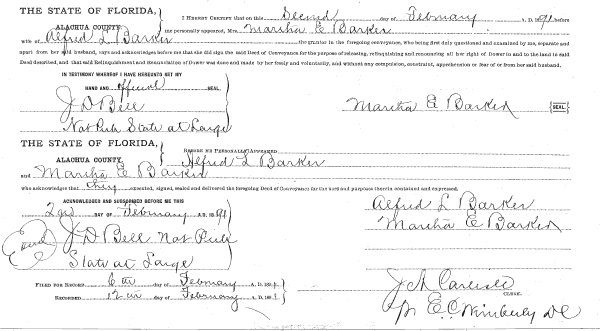 THE STATE OF FLORIDA,
ALACHUA COUNTY.
I HEREBY CERTIFY that on this Second day of February A. D. 1891 before
me personally appeared, Mrs. Martha E Barker
wife of Alfred L Barker the grantor in the foregoing conveyance, who being first duly questioned and examined by me, separate and
apart from her said husband, says and acknowledges before me that she did sign the said Deed of Conveyance for the purpose of releasing, relinquishing and renouncing all her right of Dower in and to the land in said
Deed described, and that said Relinquishment and Renunciation of Dower was done and made by her freely and voluntarily, and without any compulsion, constraint, apprehension or fear of or from her said husband.
IN TESTIMONY WHEREOF I HAVE HEREUNTO SET MY
HAND AND official SEAL.
J D Bell
Not Pub State at Large
Martha E Barker [SEAL]
THE STATE OF FLORIDA,
ALACHUA COUNTY.
BEFORE ME PERSONALLY APPEARED
Alfred L Barker
and Martha E Barker
who acknowledges that they executed, signed, sealed and delivered the foregoing Deed of Conveyance for the uses and purposes therein contained and expressed.
ACKNOWLEDGED AND SUBSCRIBED BEFORE ME THIS
2nd DAY OF February A. D. 1891
J D Bell Not Pub
State at Large
Alfred L Barker
Martha E Barker
FILED FOR RECORD 6th day of February A. D. 1891
RECORDED 12th day of February A. D. 1891
J A Carlisle
CLERK.
pr E. C. Wimberly DC